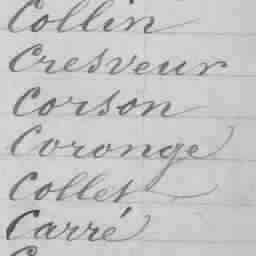 Collin
Cresveur
Corson
Coronge
Collet
Carré